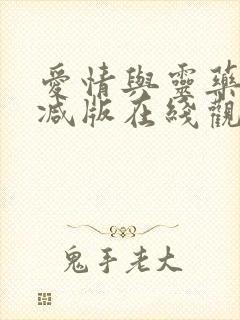 愛情與靈藥
減版在綫觀
鬼手老大